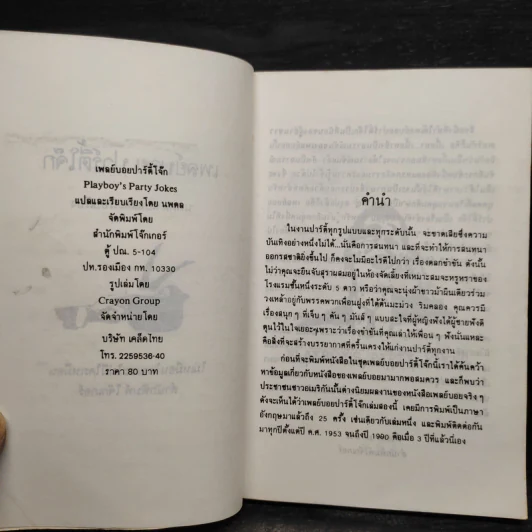 เพลย์บอยปาร์ตี้โจ๊ก
Playboy's Party Jokes
แปลและเรียบเรียงโดย นพดล
จัดพิมพ์โดย
สำนักพิมพ์โจ๊กเกอร์
ตู้ ปณ. 5-104
ปท.รองเมือง กท. 10330
รูปเล่มโดย
Crayon Group
จัดจำหน่ายโดย
บริษัท เคล็ดไทย
โทร. 2259536-40
ราคา 80 บาท
คำนำ
ในงานปาร์ตี้ทุกรูปแบบและทุกระดับนั้น จะขาดเสียซึ่งความ
บันเทิงอย่างหนึ่งไม่ได้...นั่นคือการสนทนา และที่จะทำให้การสนทนา
ออกรสชาติยิ่งขึ้นไป ก็คงจะไม่มีอะไรดีไปกว่า เรื่องตลกขำขัน ดังนั้น
ไม่ว่าคุณจะยืนจับสุราเมลอยู่ในห้องจัดเลี้ยงที่เหมาะสมจะหรูหราของ
โรงแรมชั้นหนึ่งระดับ 5 ดาว หรือว่าคุณจะนุ่งผ้าขาวม้าผืนเดียวร่วม
วงเหล้าอยู่กับพรรคพวกเพื่อนฝูงที่ใต้ต้นมะม่วง ริมคลอง คุณควรมี
เรื่องสนุก ๆ ที่เจ็บ ๆ คัน ๆ มันส์ ๆ แบบสะใจที่ผู้หญิงฟังได้ผู้ชายฟังดี
ตุนไว้ในใจเยอะๆเพราะว่าเรื่องขำขันที่คุณเล่าให้เพื่อนๆ ฟังนั่นแหละ
คือสิ่งที่จะสร้างบรรยากาศที่ครื้นเครงให้แก่งานปาร์ตี้ทุกงาน
ก่อนที่จะพิมพ์หนังสือในชุดเพลย์บอยปาร์ตี้โจ๊กนี้เราได้ค้นคว้า
หาข้อมูลเกี่ยวกับหนังสือของเพลย์บอยมามากพอสมควร และก็พบว่า
ประชาชนชาวอเมริกันนั้นต่างนิยมผลงานของหนังสือเพลย์บอยจริง ๆ
ดังจะเห็นได้ว่าเพลย์บอยปาร์ตี้โจ๊กเล่มสองนี้ เคยมีการพิมพ์เป็นภาษา
อังกฤษมาแล้วถึง 25 ครั้ง เช่นเดียวกับเล่มหนึ่ง และพิมพ์ติดต่อกัน
มาทุกปีตั้งแต่ปี ค.ศ. 1953 จนถึงปี 1990 คือเมื่อ 3 ปีที่แล้วนี้เอง